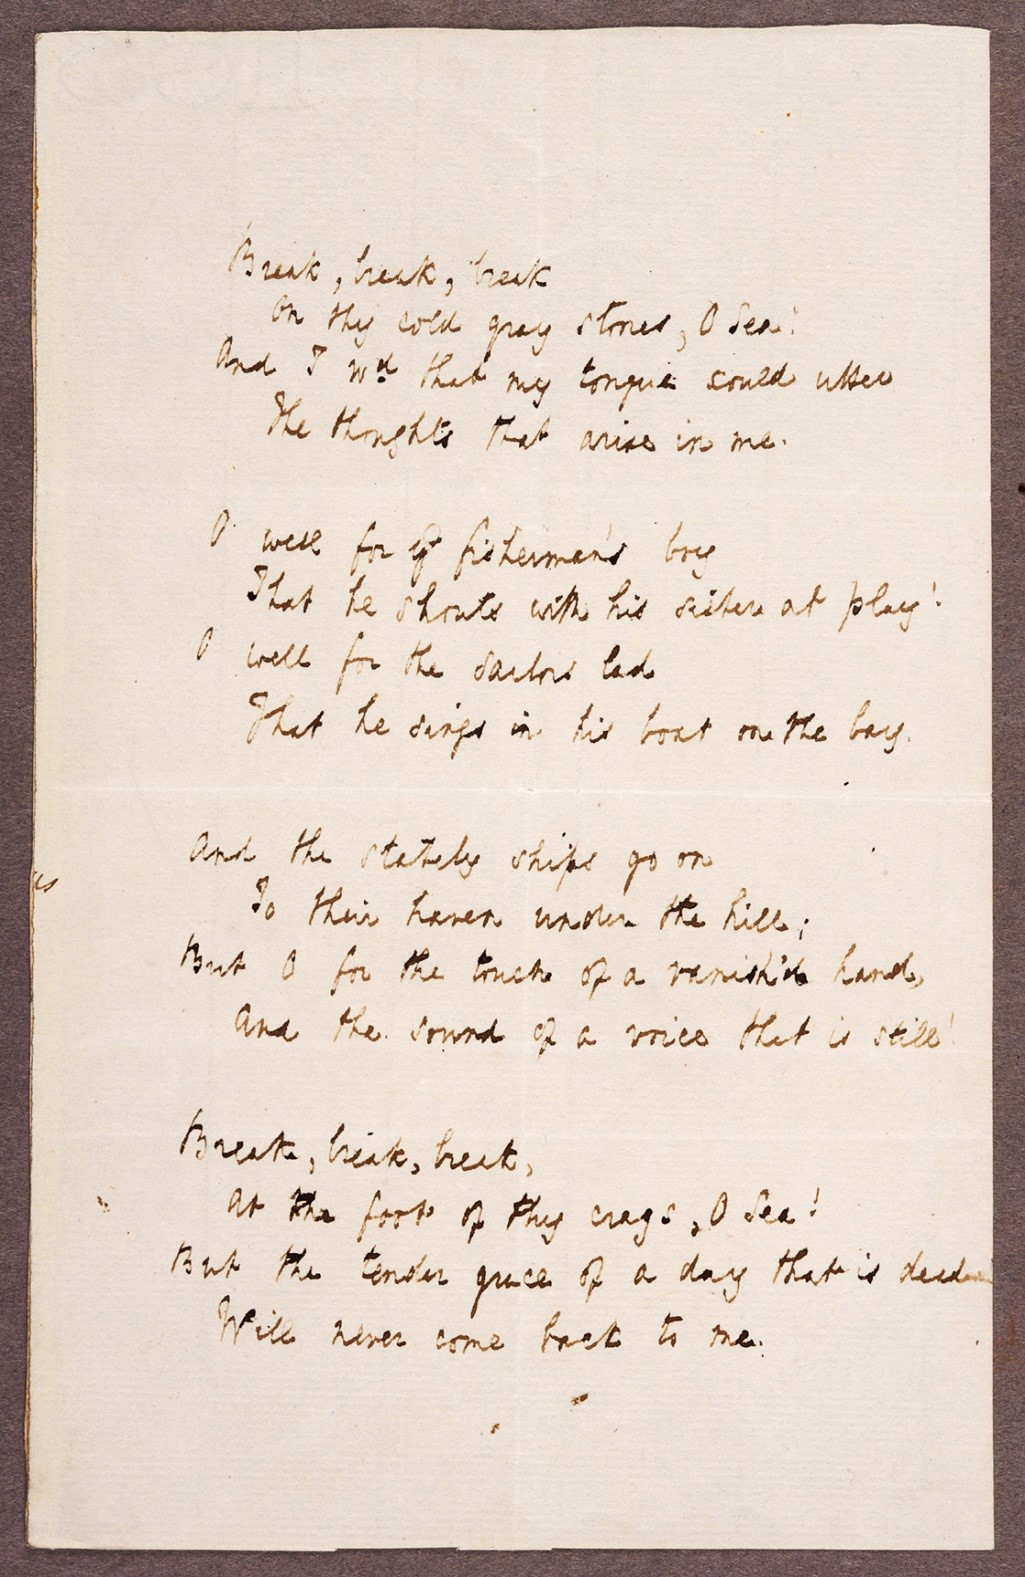 Break, break, break
On thy cold gray stones, O Sea!
And I wd that my tongue could utter
The thoughts that arise in me.
O well for ye fisherman's boy
That he shouts with his sister at play!
O well for the sailors lad
That he sings in his boat on the bay.
And the stately ships go on
To their haven under the hill;
But O for the touch of a vanish'd hand,
And the sound of a voice that is still!
Break, break, break,
At the foot of thy crags, O Sea!
But the tender grace of a day that is dead
Will never come back to me.